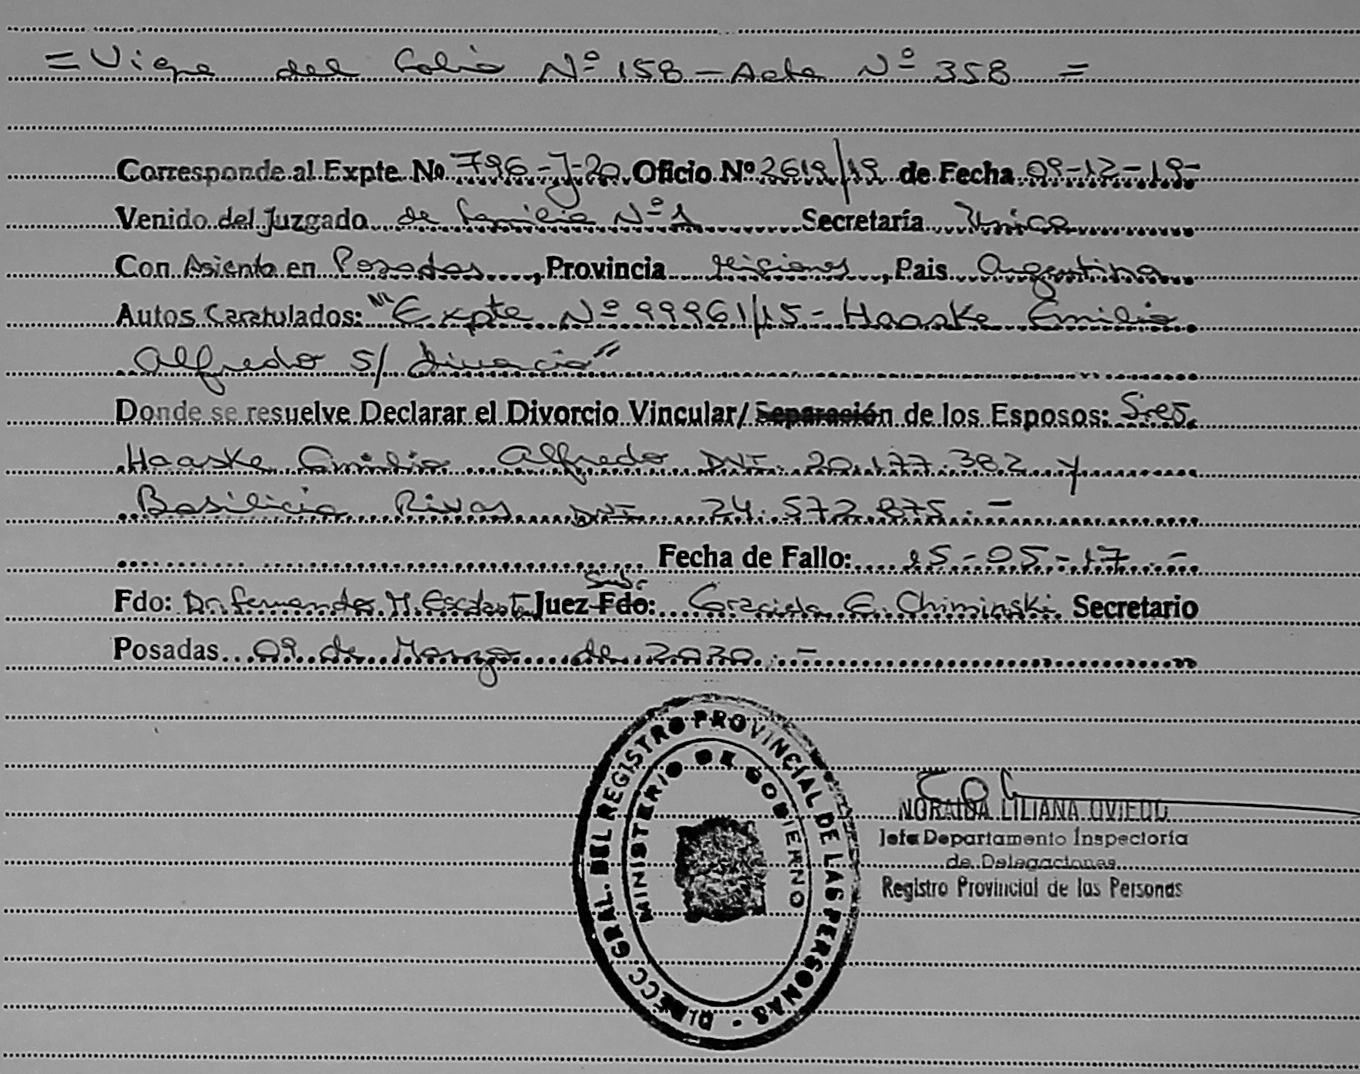 = Viene del Folio Nº 158 - Acta Nº 358 =
Corresponde al Expte Nº 796-J-20 Oficio Nº 2619/19 de Fecha 09-12-19-
Venido del Juzgado de familia Nº 1 Secretaría Única
Con Asiento en Posadas, Provincia Misiones, Pais Argentina
Autos Caratulados: "Expte Nº 99961/15 - Haaske Emilio
Alfredo S/ divorcio"
Donde se resuelve Declarar el Divorcio Vincular/Separación de los Esposos: Sres.
Haaske Emilio Alfredo DNI. 20.177.382 y
Basilicia Rivas DNI 24.572.875.-
Fecha de Fallo: 15-05-17.-
Fdo: Dr. Fernando M. Juez Fdo: Graciela E. Chiminski Secretario
Posadas 09 de Marzo de 2020.-
DIRECC. GRAL. DEL REGISTRO PROVINCIAL DE LAS PERSONAS -
MINISTERIO DE GOBIERNO
NORAIDA LILIANA OVIEDO
Jefa Departamento Inspectoría
de Delegaciones
Registro Provincial de las Personas